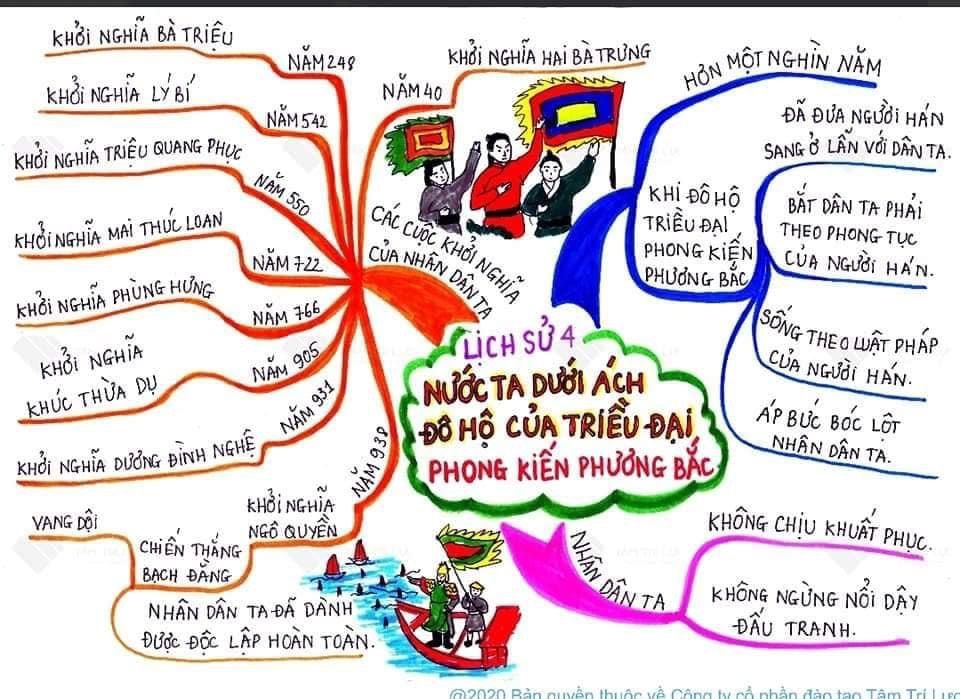 LỊCH SỬ 4
NƯỚC TA DƯỚI ÁCH
ĐÔ HỘ CỦA TRIỀU ĐẠI
PHONG KIẾN PHƯƠNG BẮC
CÁC CUỘC KHỞI NGHĨA
CỦA NHÂN DÂN TA
NĂM 40
KHỞI NGHĨA HAI BÀ TRƯNG
NĂM 248
KHỞI NGHĨA BÀ TRIỆU
NĂM 542
KHỞI NGHĨA LÝ BÍ
NĂM 550
KHỞI NGHĨA TRIỆU QUANG PHỤC
NĂM 722
KHỞI NGHĨA MAI THÚC LOAN
NĂM 766
KHỞI NGHĨA PHÙNG HƯNG
NĂM 905
KHỞI NGHĨA
KHÚC THỪA DỤ
NĂM 931
KHỞI NGHĨA DƯƠNG ĐÌNH NGHỆ
NĂM 938
KHỞI NGHĨA
NGÔ QUYỀN
CHIẾN THẮNG
BẠCH ĐẰNG
VANG DỘI
NHÂN DÂN TA ĐÃ DÀNH
ĐƯỢC ĐỘC LẬP HOÀN TOÀN.
HƠN MỘT NGHÌN NĂM
KHI ĐÔ HỘ
TRIỀU ĐẠI
PHONG KIẾN
PHƯƠNG BẮC
ĐÃ ĐƯA NGƯỜI HÁN
SANG Ở LẪN VỚI DÂN TA.
BẮT DÂN TA PHẢI
THEO PHONG TỤC
CỦA NGƯỜI HÁN.
SỐNG THEO LUẬT PHÁP
CỦA NGƯỜI HÁN.
ÁP BỨC BÓC LỘT
NHÂN DÂN TA.
NHÂN DÂN TA
KHÔNG CHỊU KHUẤT PHỤC.
KHÔNG NGỪNG NỔI DẬY
ĐẤU TRANH.
@2020 Bản quyền thuộc về Công ty cổ phần đào tạo Tâm Trí Lực